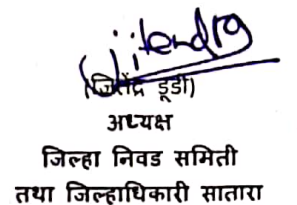 Jitendra
(जितेंद्र डूडी)
अध्यक्ष
जिल्हा निवड समिती
तथा जिल्हाधिकारी सातारा